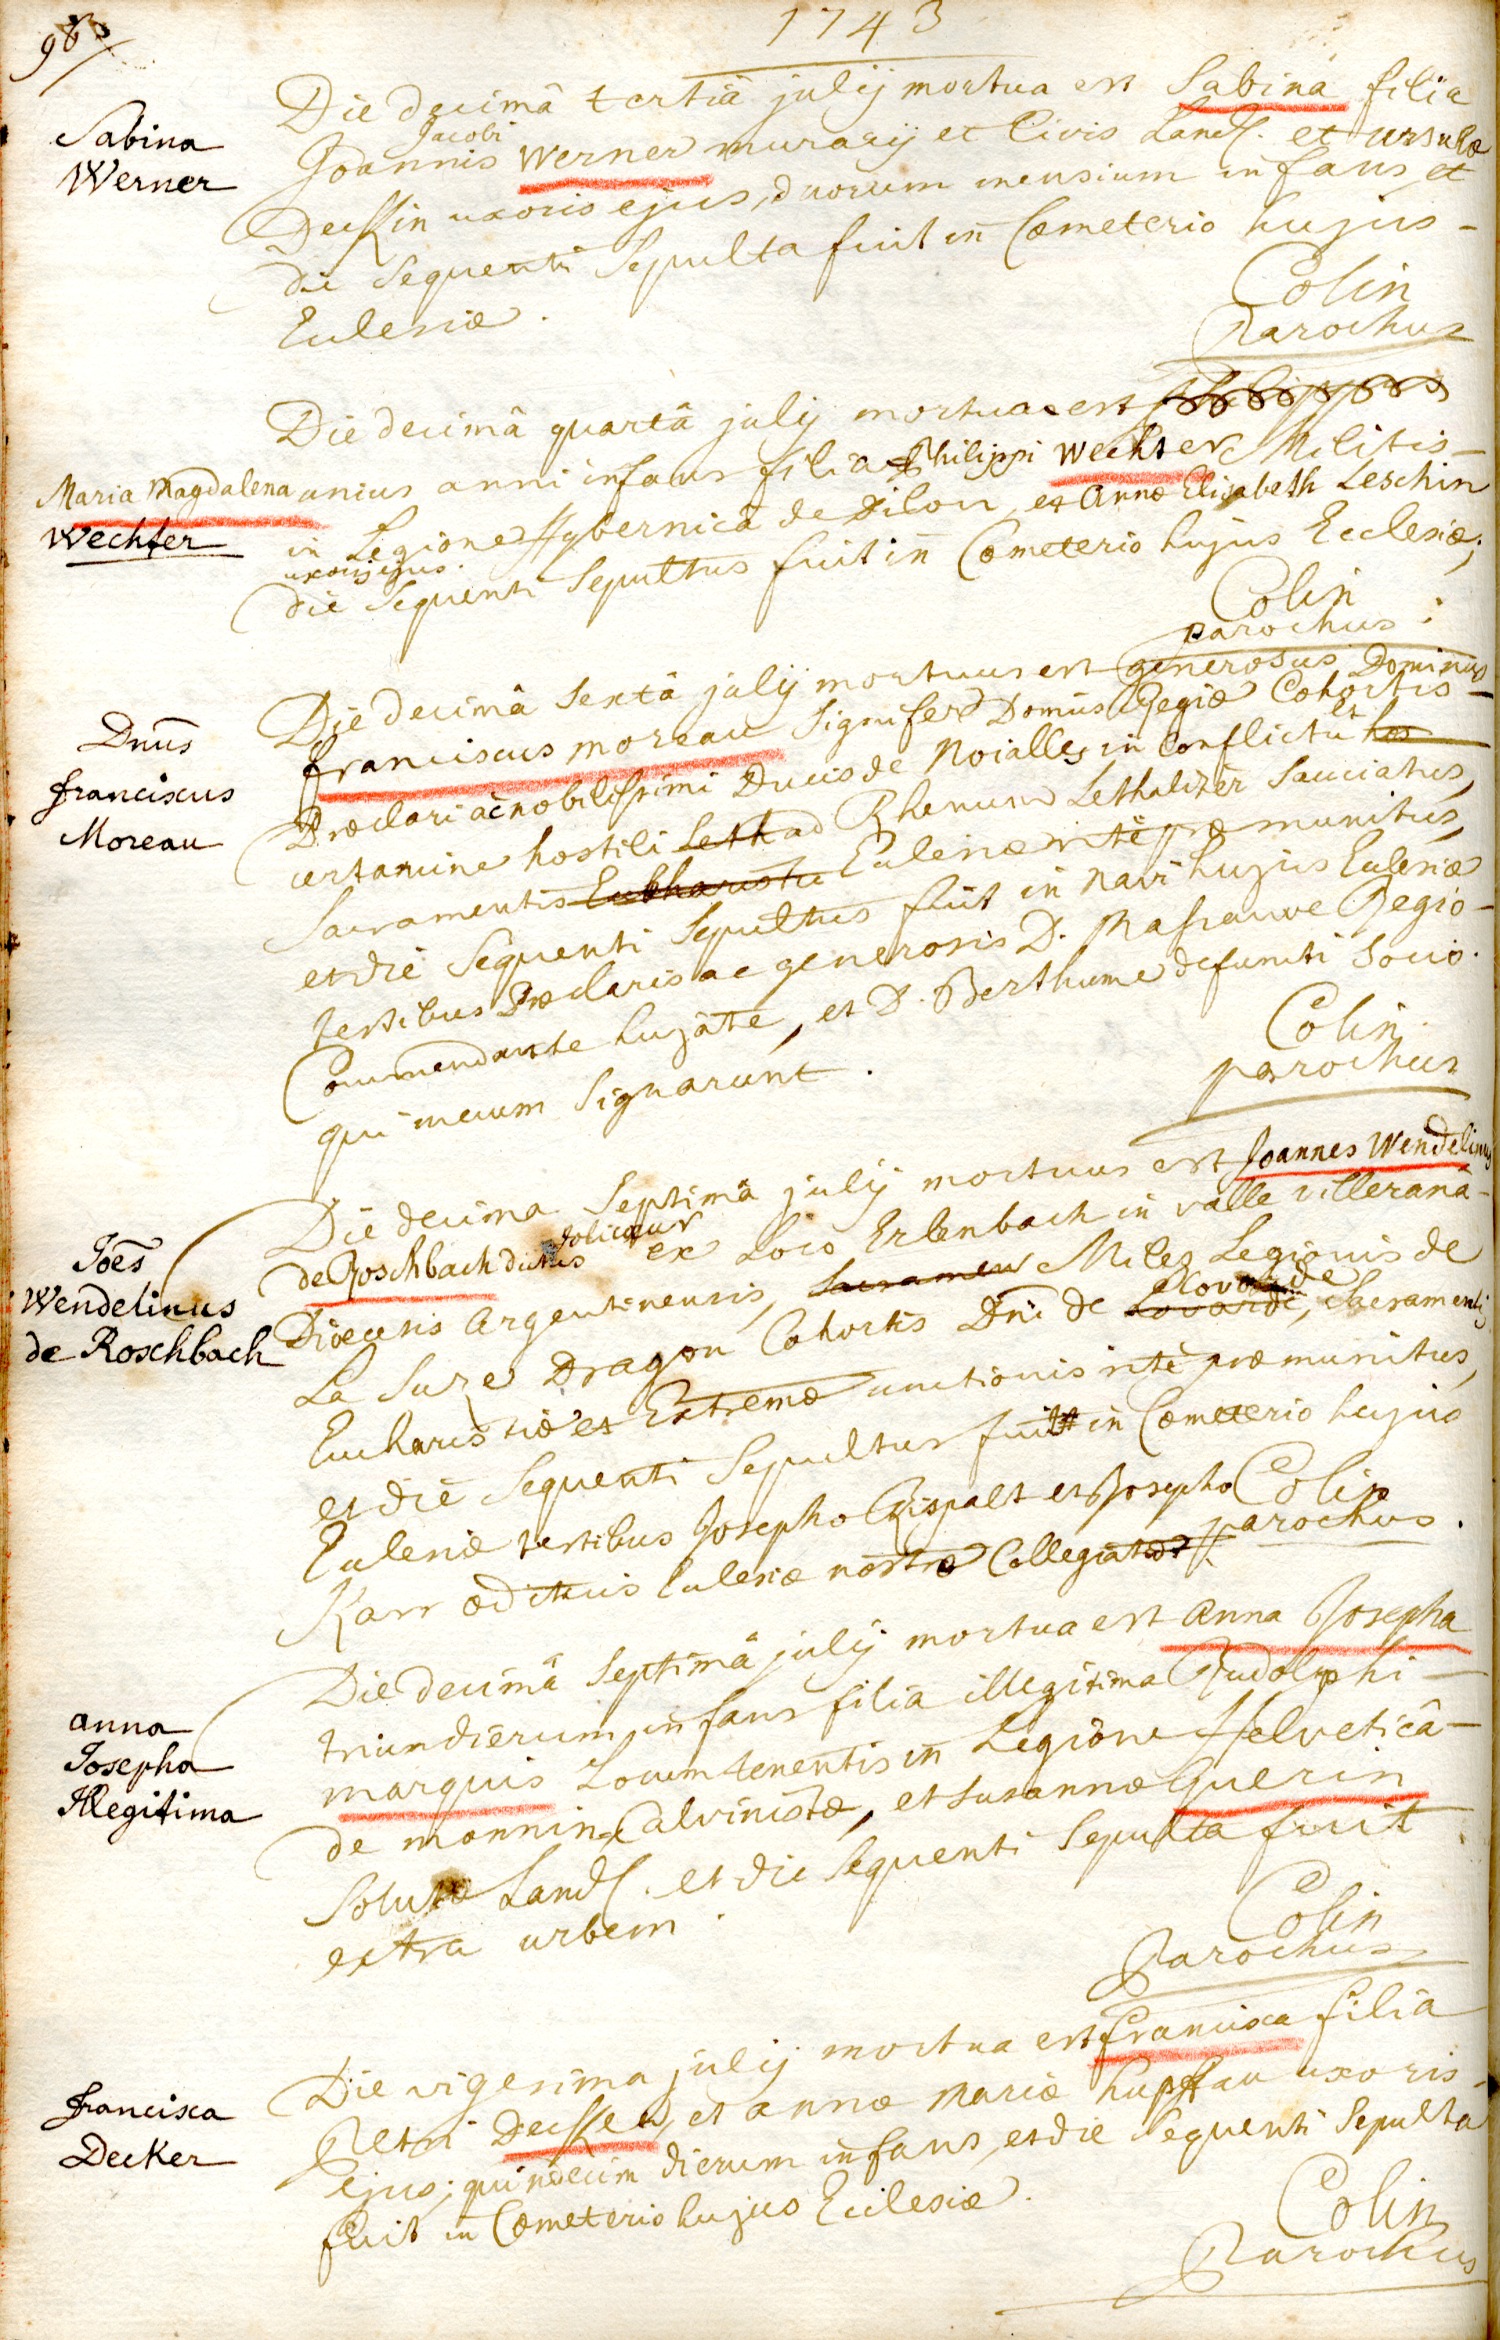 1743
Sabina
Werner
Die decimâ tertiâ julij mortua est Sabina filia
Jacobi
Joannis Werner murarij et Civis Land. et ursulæ
Deckin uxoris ejus, duorum mensium infans, et
die sequenti sepulta fuit in Cœmeterio hujus
Ecclesiæ.
Colin
Parochus
Maria Magdalena
Wechter
Die decimâ quartâ julij mortua est
unius anni infans filia Philippi Wechter Militis
in Legione Hybernicâ de Dilon, et Annæ Elisabeth Leschin
uxoris ejus.
die sequenti sepultus fuit in Cœmeterio hujus Ecclesiæ;
Colin
parochus
Dnūs
franciscus
Moreau
Die decimâ sextâ julij mortuus est generosus Dominus
franciscus moreau signifer Domus Regiæ Cohortis
Præclari ac nobilissimi Ducis de Noialles in Conflictu et hes
certamine hostili Leth ad Rhenum Lethaliter sauciatus,
Sacramentis Eukharistiæ Ecclesiæ ritè præmunitus,
et die sequenti sepultus fuit in navi hujus Ecclesiæ
testibus Præclaris ac generosis D. Massauve Regio
Commendante hujate, et D. Berthume defuncti socio
qui mecum signarunt.
Colin
parochus
Joēs
Wendelinus
de Roschbach
Die decima septimâ julij mortuus est Joannes Wendelinus
Jolicœur
de Roschbach dictus ex Loco Erlenbach in valle villeranâ
Diœcesis Argentinensis, Sacramen Miles Legionis de
La Sure Dragon Cohortis Dni de Lovarde, Sacramentis
Eucharistiæ et Extremæ unctionis ritè præmunitus,
et die sequenti sepultus fuit in Cœmeterio hujus
Ecclesiæ testibus Josepho Rispalt et Josepho
Karr ædituis Ecclesiæ nostræ Collegiatæ
Colin
parochus.
anna
Josepha
Illegitima
Die decimâ septimâ julij mortua est Anna Josepha
trium dierum infans filia illegitima Rudolphi
marquis Locum tenentis in Legione Helveticâ
de monnin Calvinistæ, et susannæ Guerin
solutæ Land. et die sequenti sepulta fuit
extra urbem.
Colin
Parochus
francisca
Decker
Die vigesima julij mortua est francisca filia
Petri Decker, et annæ mariæ hupffau uxoris
ejus; quindecim dierum infans, et die sequenti sepulta
fuit in Cœmeterio hujus Ecclesiæ.
Colin
Parochus